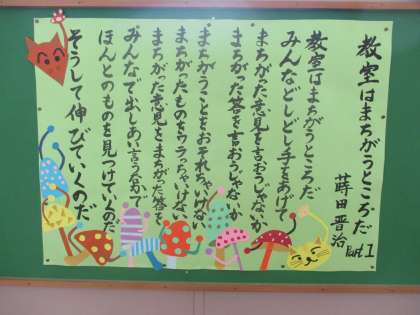 教室はまちがうところだ
蒔田晋治
Part 1
教室はまちがうところだ
みんなどしどし手をあげて
まちがった意見を言おうじゃないか
まちがった答を言おうじゃないか
まちがうことをおそれちゃいけない
まちがったものをワラっちゃいけない
まちがった意見をまちがった答を
みんなで出しあい言うなかで
ほんとのものを見つけていくのだ
そうして伸びていくのだ